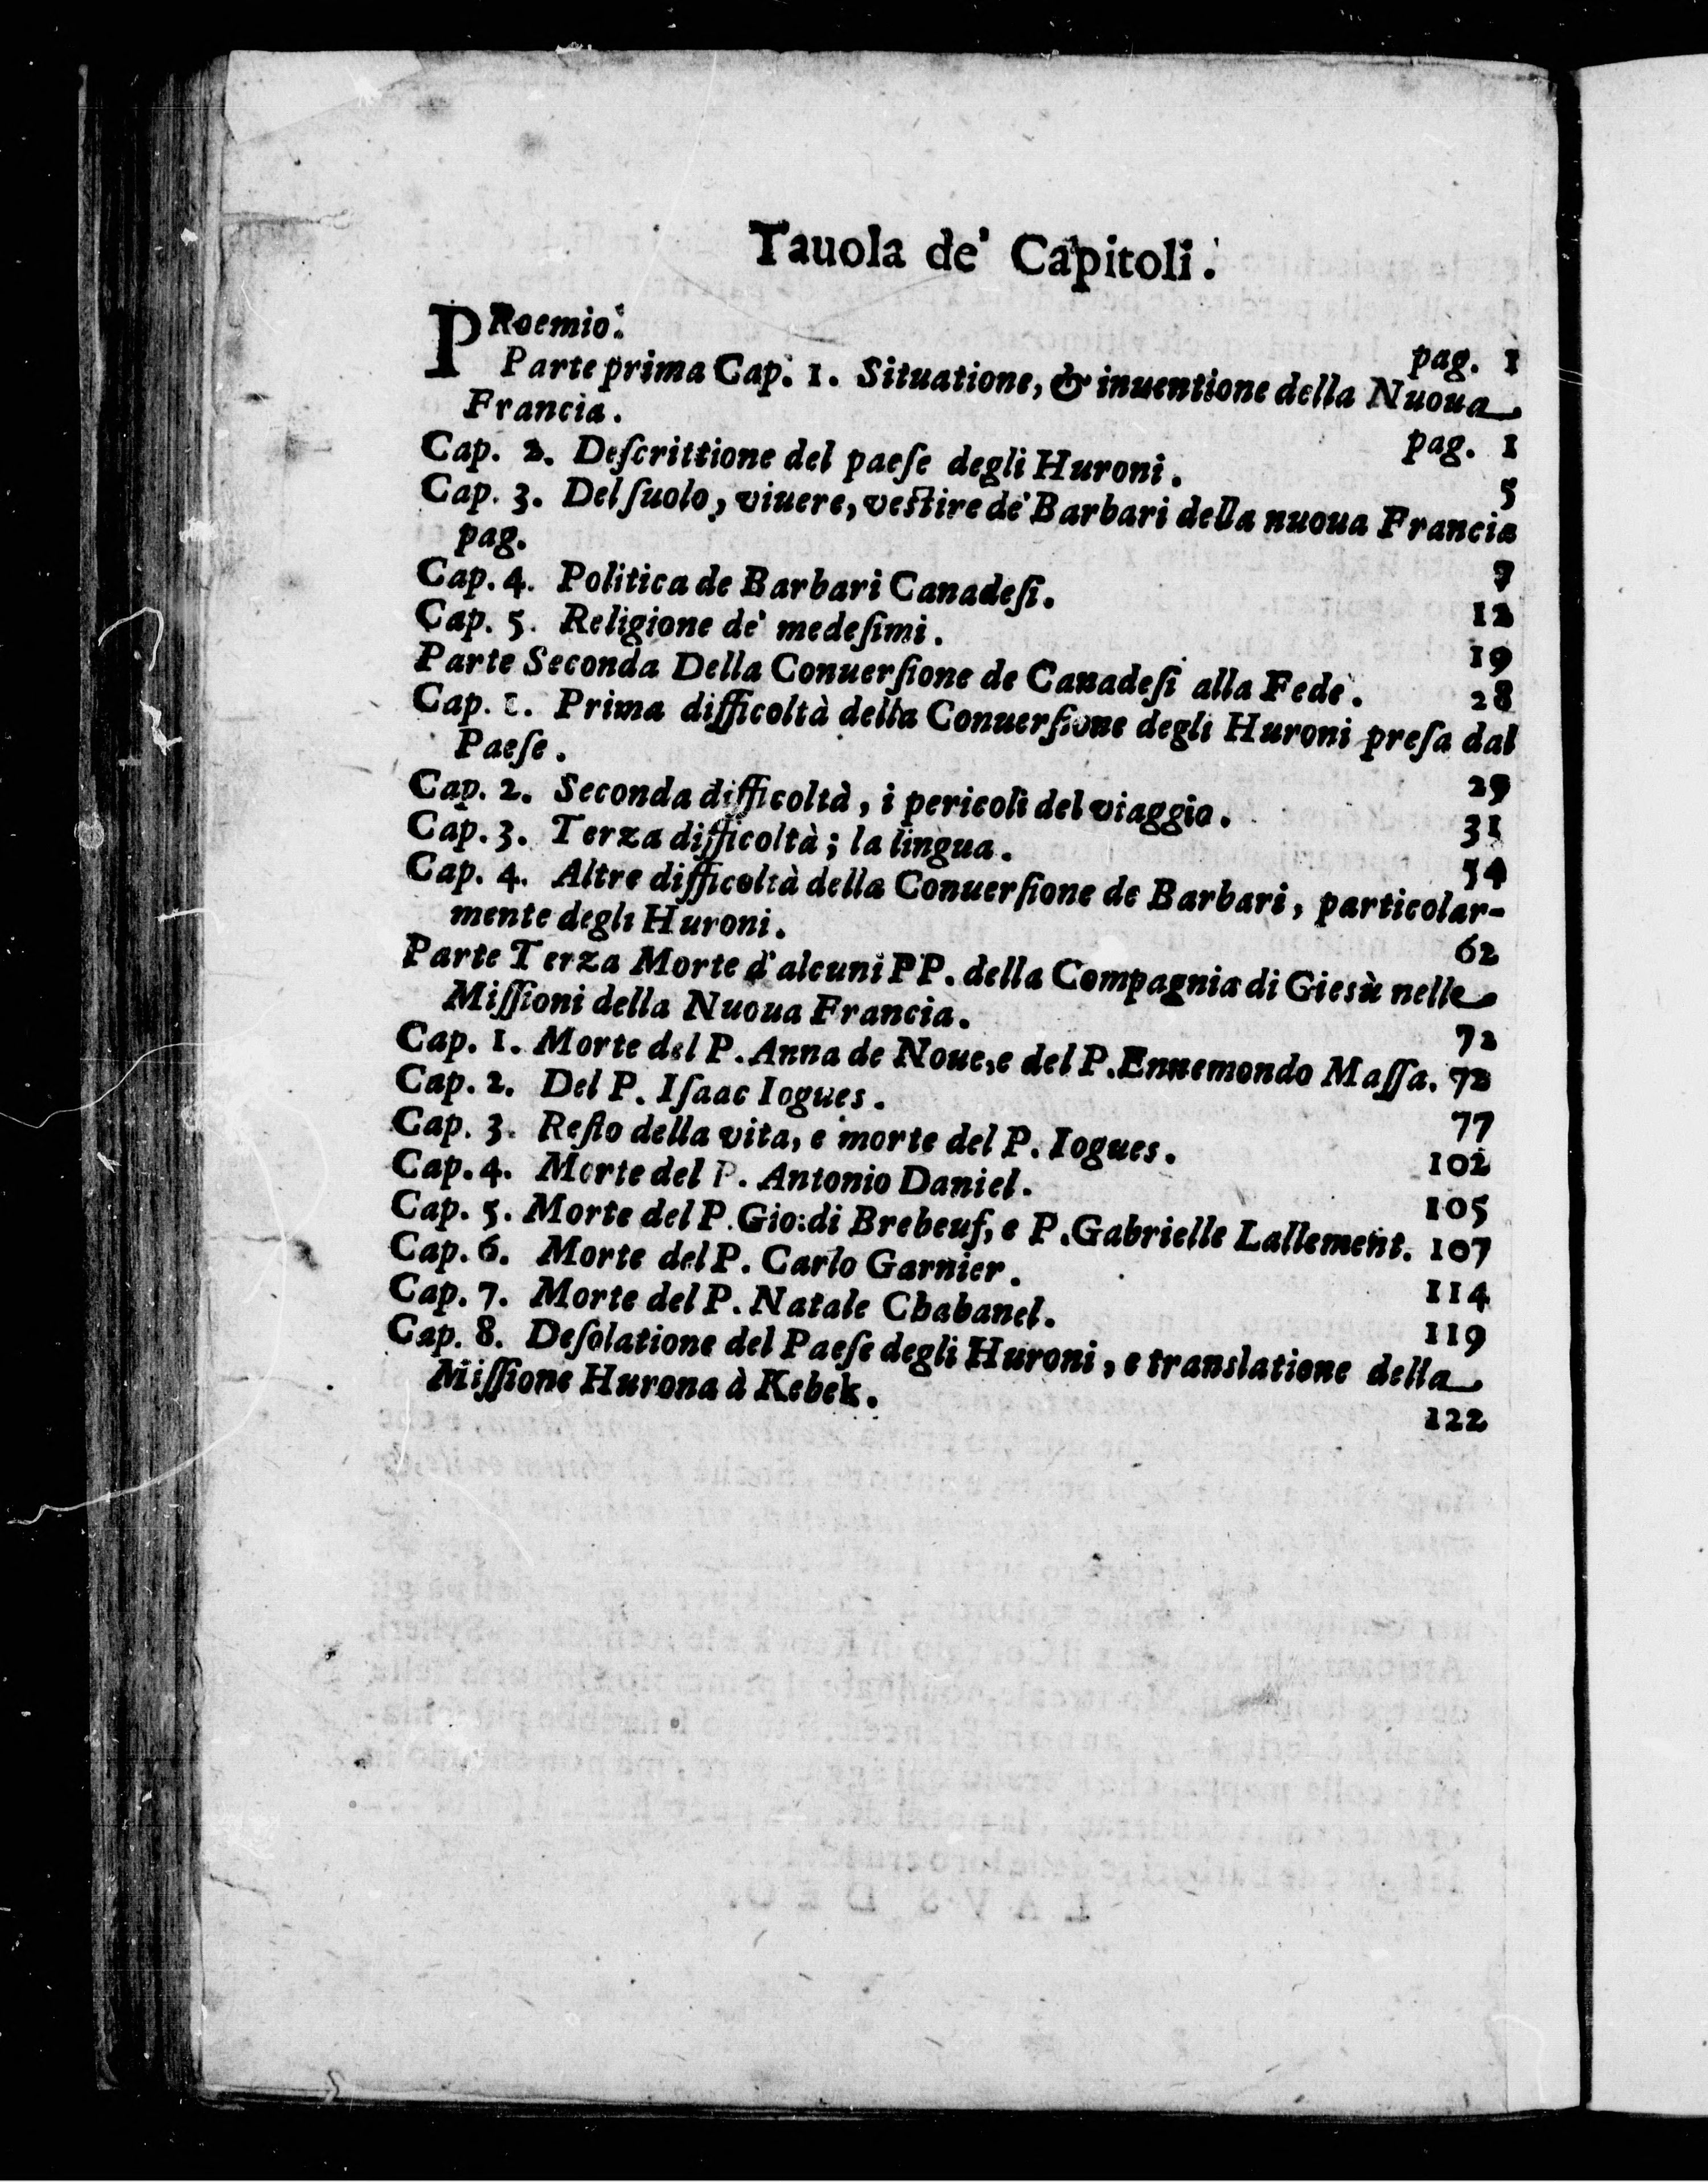 Tauola de' Capitoli.
PRoemio. pag. 1
Parte prima Cap. 1. Situatione, & inuentione della Nuoua
Francia. pag. 1
Cap. 2. Deſcrittione del paeſe degli Huroni. 5
Cap. 3. Del ſuolo, viuere, veſtire de' Barbari della nuoua Francia
pag. 9
Cap. 4. Politica de Barbari Canadeſi. 12
Cap. 5. Religione de' medeſimi. 19
Parte Seconda Della Conuerſione de Canadeſi alla Fede. 28
Cap. 1. Prima difficoltà della Conuerſione degli Huroni preſa dal
Paeſe. 29
Cap. 2. Seconda difficoltà, i pericoli del viaggio. 31
Cap. 3. Terza difficoltà; la lingua. 54
Cap. 4. Altre difficoltà della Conuerſione de Barbari, particolar-
mente degli Huroni. 62
Parte Terza Morte d'alcuni PP. della Compagnia di Giesù nelle
Miſſioni della Nuoua Francia. 72
Cap. 1. Morte del P. Anna de Noue, e del P. Ennemondo Maſſa. 72
Cap. 2. Del P. Iſaac Iogues. 77
Cap. 3. Reſto della vita, e morte del P. Iogues. 102
Cap. 4. Morte del P. Antonio Daniel. 105
Cap. 5. Morte del P. Gio: di Brebeuf, e P. Gabrielle Lallement. 107
Cap. 6. Morte del P. Carlo Garnier. 114
Cap. 7. Morte del P. Natale Chabanel. 119
Cap. 8. Deſolatione del Paeſe degli Huroni, e translatione della
Miſſione Hurona à Kebek. 122